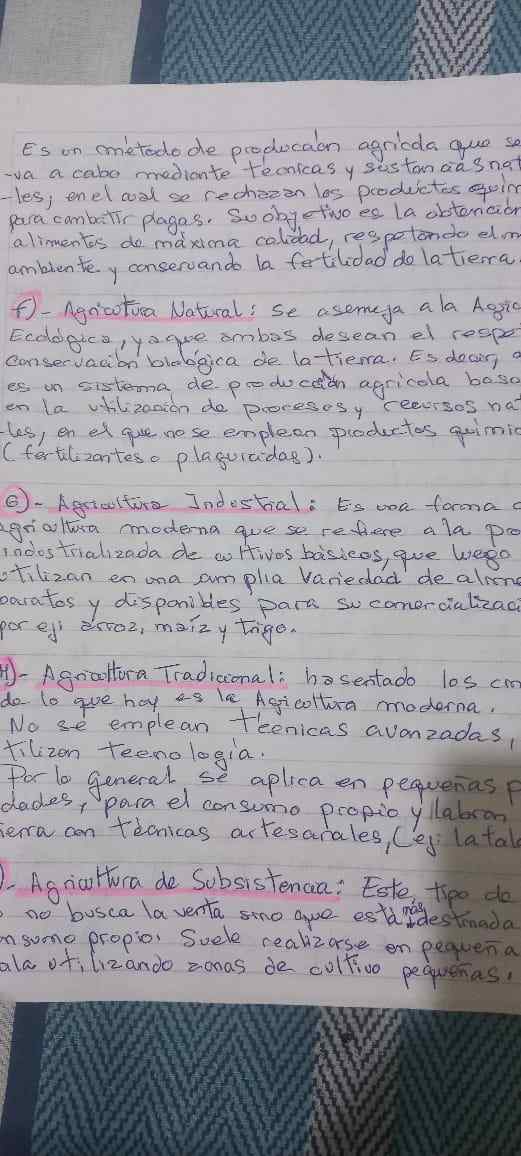 Es un método de producción agrícola que se
-va a cabo mediante técnicas y sustancias nat
-les; en el cual se rechazan los productos quim
para combatir plagas. Su objetivo es la obtención
alimentos de máxima calidad, respetando el m
ambiente y conservando la fertilidad de la tierra.
f)- Agricultura Natural: Se asemeja a la Agric
Ecológica, ya que ambas desean el respe
conservación biológica de la tierra. Es decir,
es un sistema de producción agrícola basa
en la utilización de procesos y recursos na
-les, en el que no se emplean productos quimic
(fertilizantes o plaguicidas).
G)- Agricultura Industrial: Es una forma d
agricultura moderna que se refiere a la pro
industrializada de cultivos básicos, que luego
utilizan en una amplia variedad de alime
baratos y disponibles para su comercializaci
por ej: arroz, maíz y trigo.
H)- Agricultura Tradicional: ha sentado los cim
de lo que hoy es la Agricultura moderna.
No se emplean técnicas avanzadas,
tilizan tecnología.
Por lo general se aplica en pequeñas p
dades, para el consumo propio y llabran
ierra con técnicas artesanales, (ej: la tala
)- Agricultura de Subsistencia: Este, tipo de
no busca la venta sino que está más destinada
nsumo propio. Suele realizarse en pequeña
ala utilizando zonas de cultivo pequeñas.